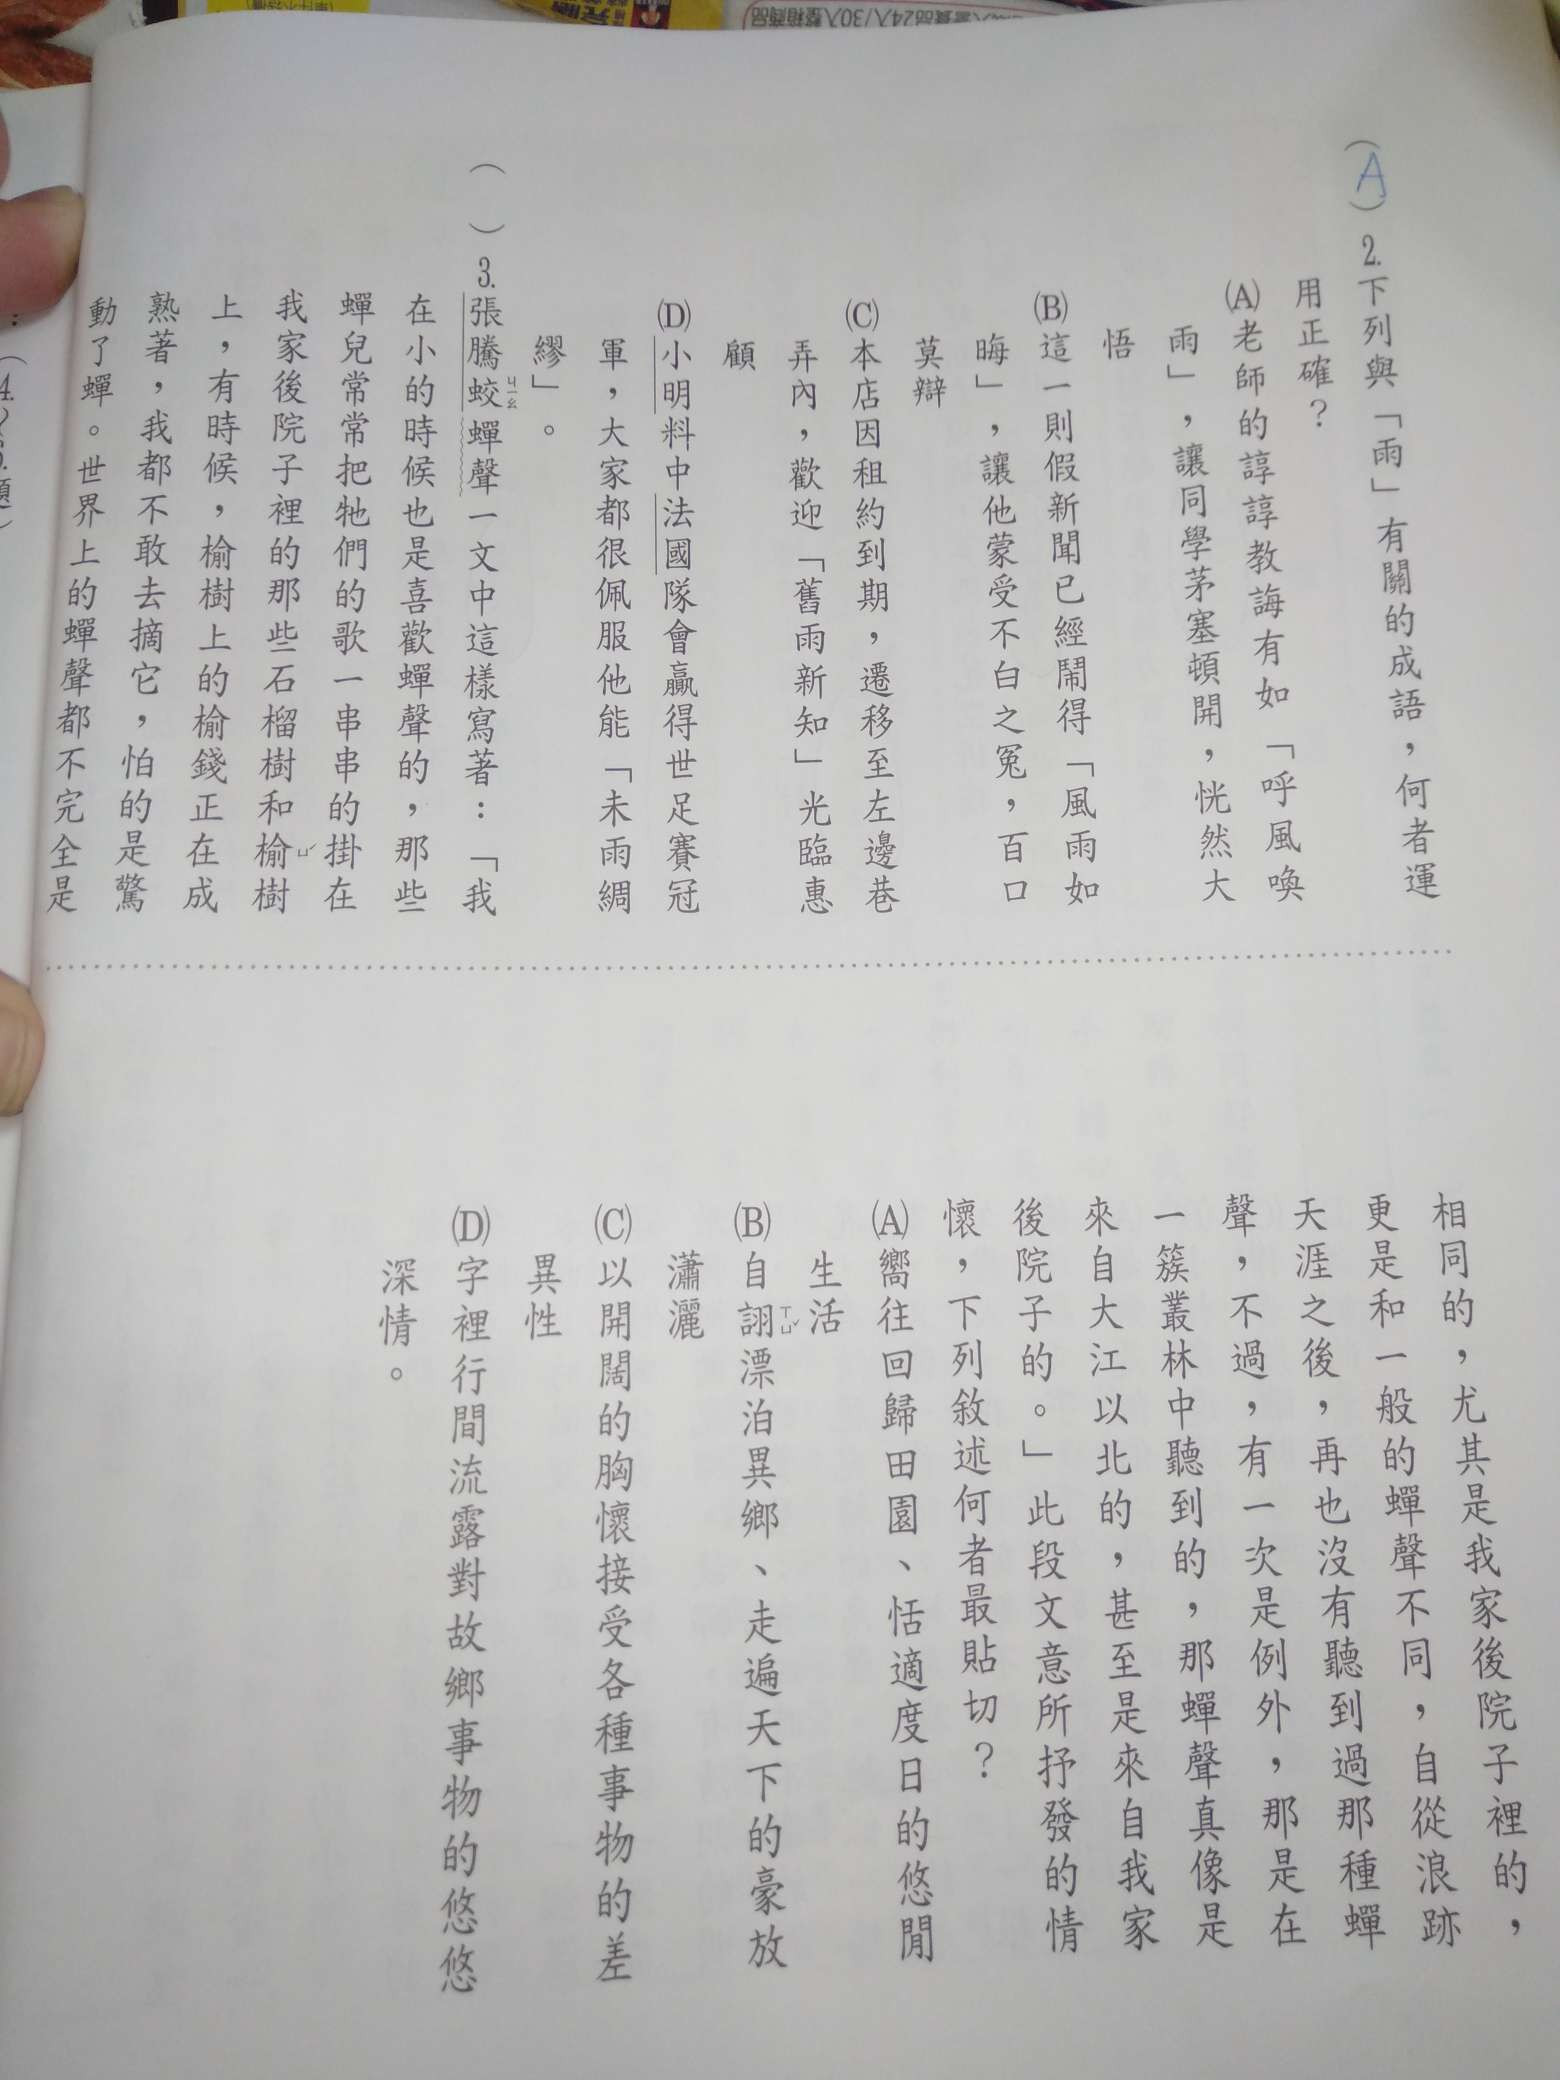 (A)2.下列與「雨」有關的成語，何者運
用正確？
(A)老師的諄諄教誨有如「呼風喚
雨」，讓同學茅塞頓開，恍然大
悟
(B)這一則假新聞已經鬧得「風雨如
晦」，讓他蒙受不白之冤，百口
莫辯
(C)本店因租約到期，遷移至左邊巷
弄內，歡迎「舊雨新知」光臨惠
顧
(D)小明料中法國隊會贏得世足賽冠
軍，大家都很佩服他能「未雨綢
繆」。
( )3.張騰蛟ㄐㄧㄠ蟬聲一文中這樣寫著：「我
在小的時候也是喜歡蟬聲的，那些
蟬兒常常把牠們的歌一串串的掛在
我家後院子裡的那些石榴樹和榆ㄩˊ樹
上，有時候，榆樹上的榆錢正在成
熟著，我都不敢去摘它，怕的是驚
動了蟬。世界上的蟬聲都不完全是
相同的，尤其是我家後院子裡的，
更是和一般的蟬聲不同，自從浪跡
天涯之後，再也沒有聽到過那種蟬
聲，不過，有一次是例外，那是在
一簇叢林中聽到的，那蟬聲真像是
來自大江以北的，甚至是來自我家
後院子的。」此段文意所抒發的情
懷，下列敘述何者最貼切？
(A)嚮往回歸田園、恬適度日的悠閒
生活
(B)自詡ㄒㄩˇ漂泊異鄉、走遍天下的豪放
瀟灑
(C)以開闊的胸懷接受各種事物的差
異性
(D)字裡行間流露對故鄉事物的悠悠
深情。